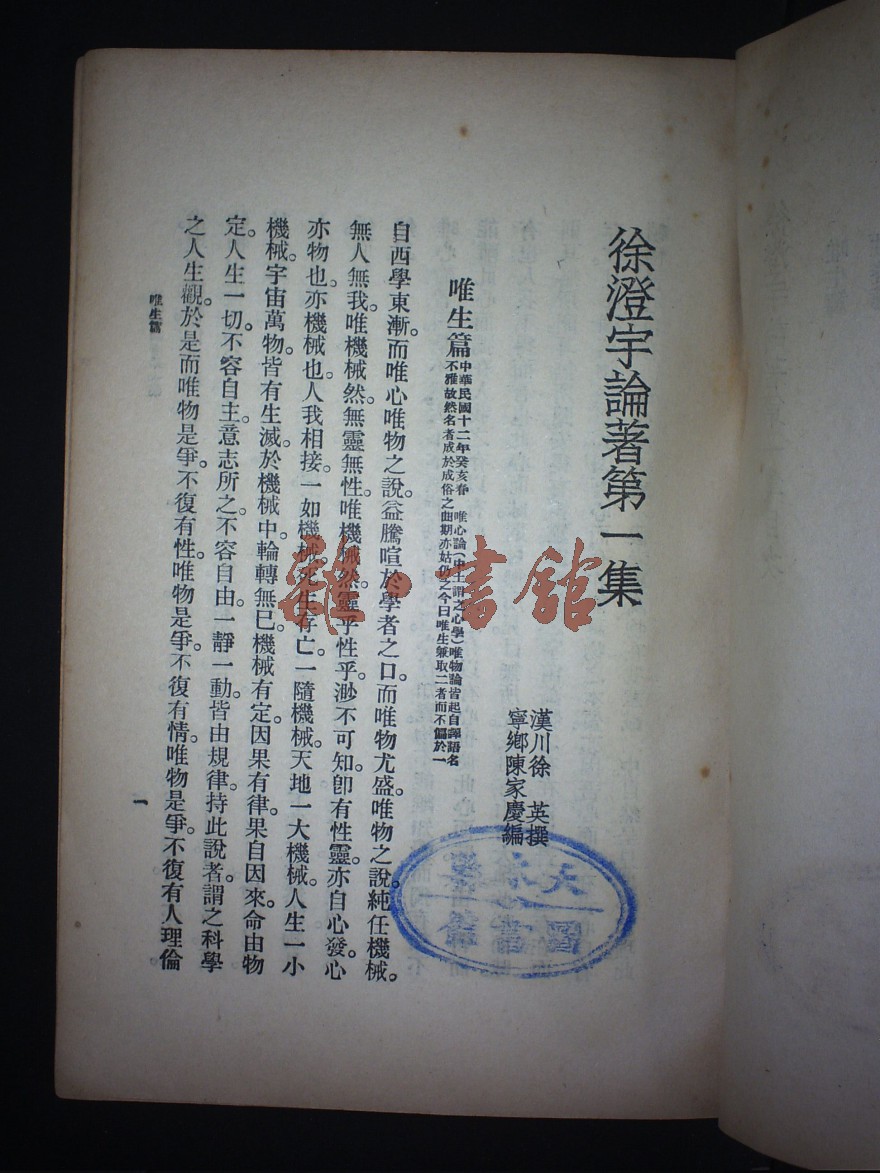 徐澄宇論著第一集
漢川徐　英撰
寧鄉陳家慶編
唯生篇
中華民國十二年癸亥春　唯心論(中土謂之心學)唯物論皆起自譯語名
不雅故然名者成於成俗之曲期亦姑仍之今曰唯生兼取二者而不偏於一
自西學東漸。而唯心唯物之說。益騰喧於學者之口。而唯物尤盛。唯物之說。純任機械。
無人無我。唯機械然。無靈無性。唯機械然。靈乎性乎。渺不可知。卽有性靈。亦自心發。心
亦物也。亦機械也。人我相接。一如機械。死生存亡。一隨機械。天地一大機械。人生一小
機械。宇宙萬物。皆有生滅。於機械中。輪轉無已。機械有定。因果有律。果自因來。命由物
定。人生一切。不容自主。意志所之。不容自由。一靜一動。皆由規律。持此說者。謂之科學
之人生觀。於是而唯物是爭。不復有性。唯物是爭。不復有情。唯物是爭。不復有人理倫
唯生篇
一
雜·書館